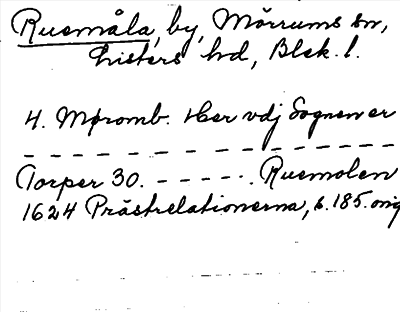 Rusmåla, by, Mörrums sn,
Listers hd, Blek. l.
4. Møromb. Her vdj Sognen er
Torper 30. - - - - - . Rusmolen
1624 Prästrelationerna, s. 185. orig